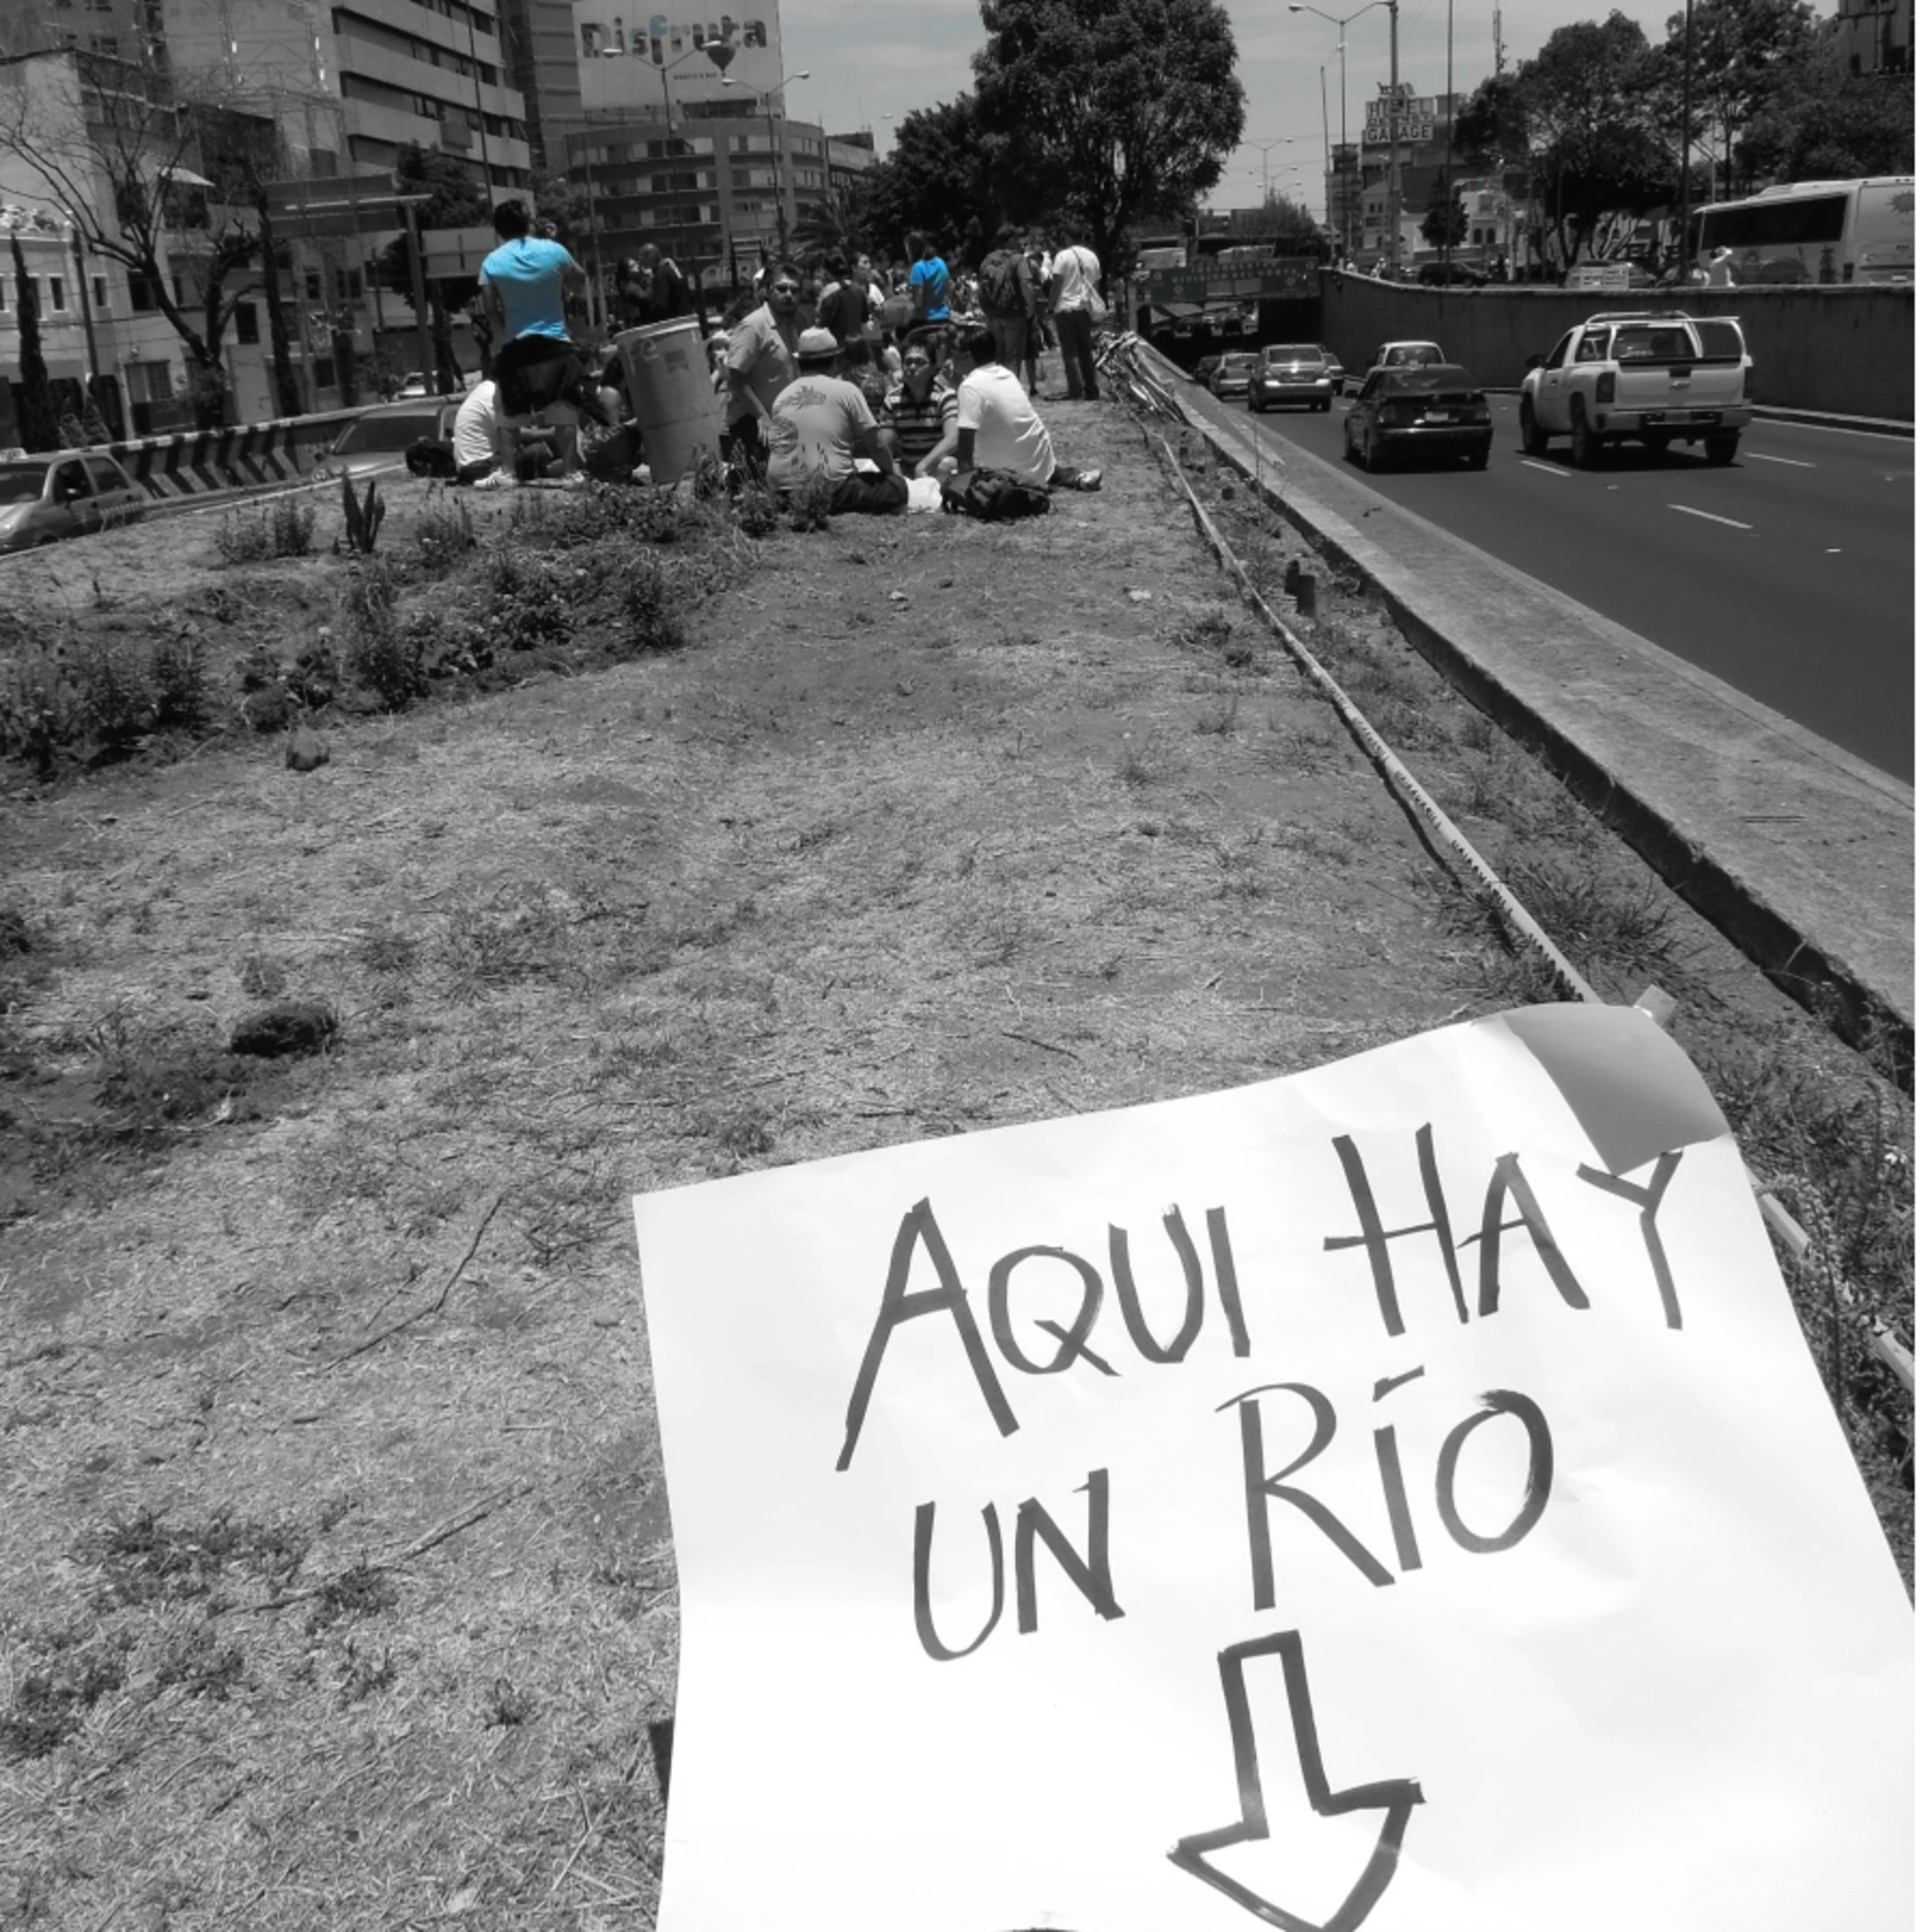 Disfruta
HOTEL
GARAGE
AQUI HAY
UN RÍO